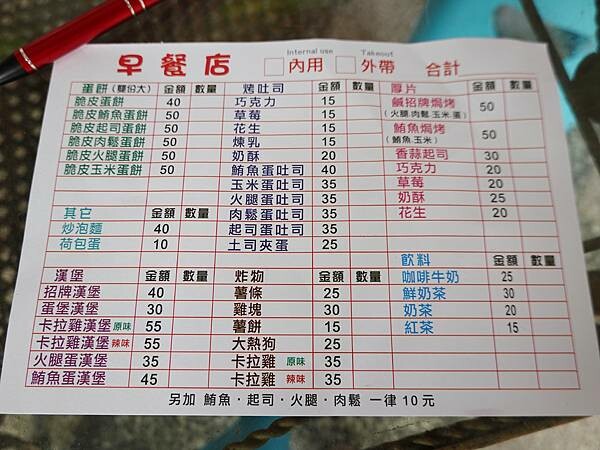 早餐店 Internal use 內用 Takeout 外帶 合計
蛋餅(雙份大) 金額 數量
脆皮蛋餅 40
脆皮鮪魚蛋餅 50
脆皮起司蛋餅 50
脆皮肉鬆蛋餅 50
脆皮火腿蛋餅 50
脆皮玉米蛋餅 50
其它 金額 數量
炒泡麵 40
荷包蛋 10
烤吐司 金額 數量
巧克力 15
草莓 15
花生 15
煉乳 15
奶酥 20
鮪魚蛋吐司 40
玉米蛋吐司 35
火腿蛋吐司 35
肉鬆蛋吐司 35
起司蛋吐司 35
土司夾蛋 25
厚片 金額 數量
鹹招牌焗烤 50
(火腿.肉鬆.玉米.蛋)
鮪魚焗烤 50
(鮪魚.玉米)
香蒜起司 30
巧克力 20
草莓 20
奶酥 25
花生 20
漢堡 金額 數量
招牌漢堡 40
蛋堡漢堡 30
卡拉雞漢堡 原味 55
卡拉雞漢堡 辣味 55
火腿蛋漢堡 35
鮪魚蛋漢堡 45
炸物 金額 數量
薯條 25
雞塊 30
薯餅 15
大熱狗 25
卡拉雞 原味 35
卡拉雞 辣味 35
飲料 金額 數量
咖啡牛奶 25
鮮奶茶 30
奶茶 20
紅茶 15
另加 鮪魚·起司·火腿·肉鬆 一律10元